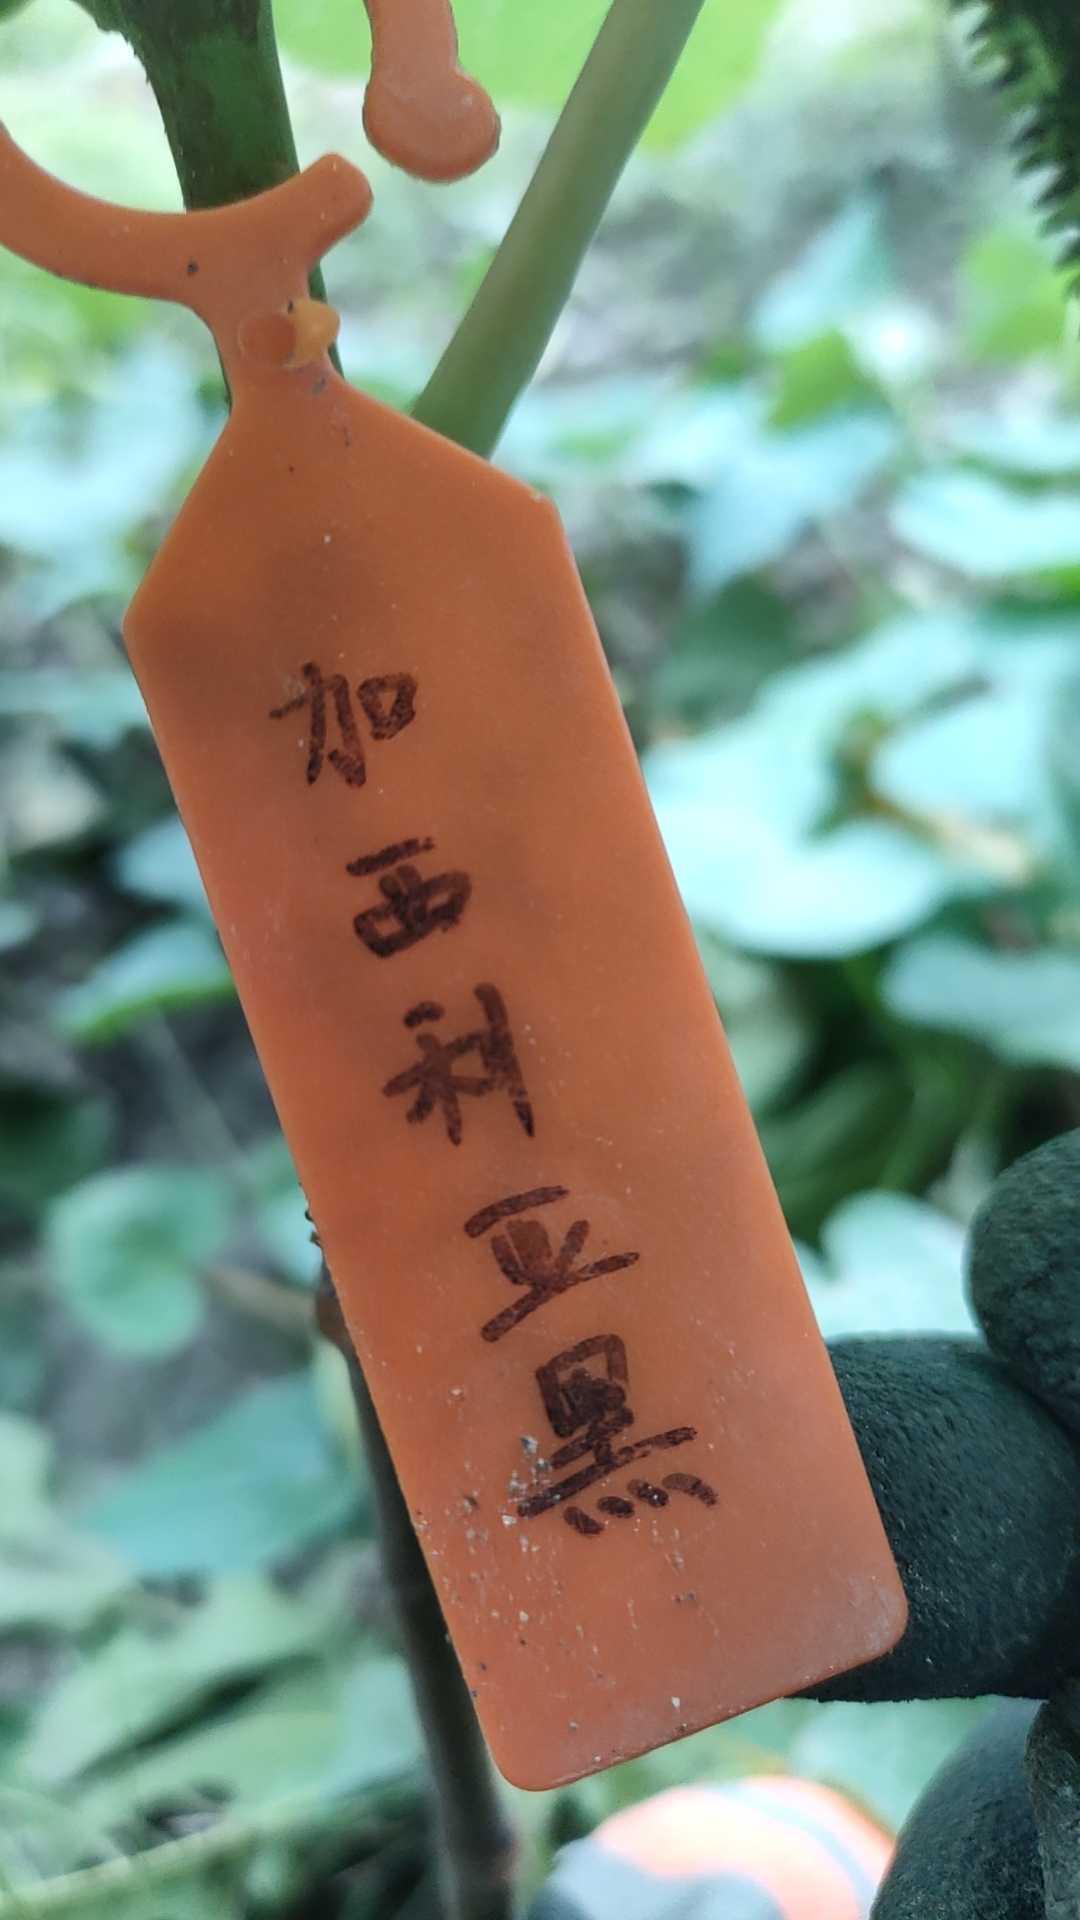 加西利亚黑